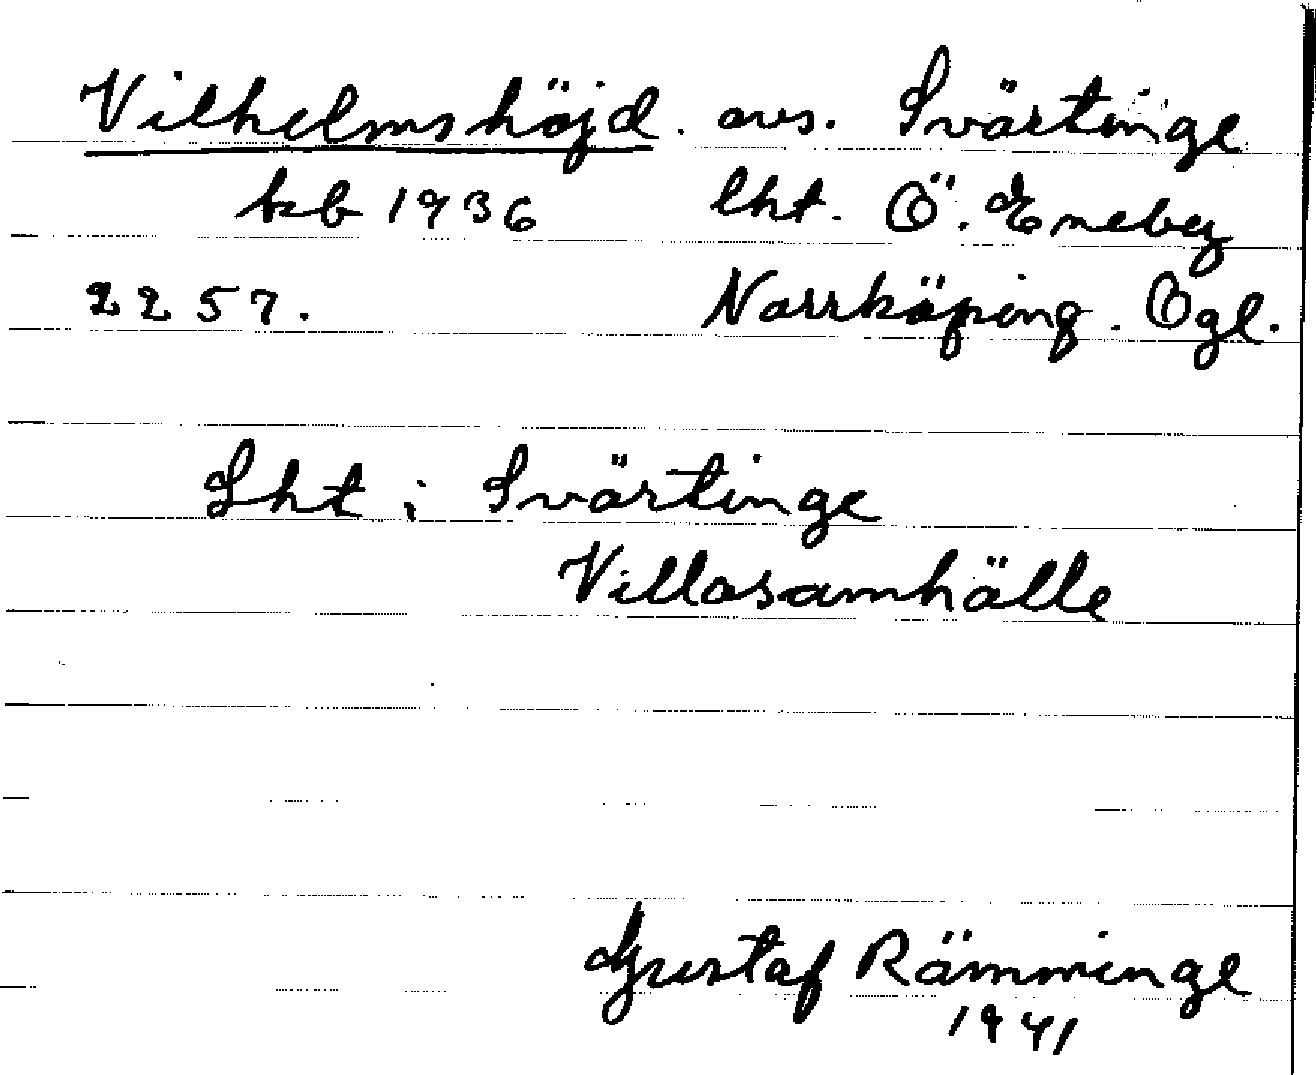 Vilhelmshöjd. avs. Svärtinge
kb 1936 lht. Ö. Eneby
2257. Norrköping. Ögl.
Lht i Svärtinge
Villasamhälle
Gustaf Rämminge
1941